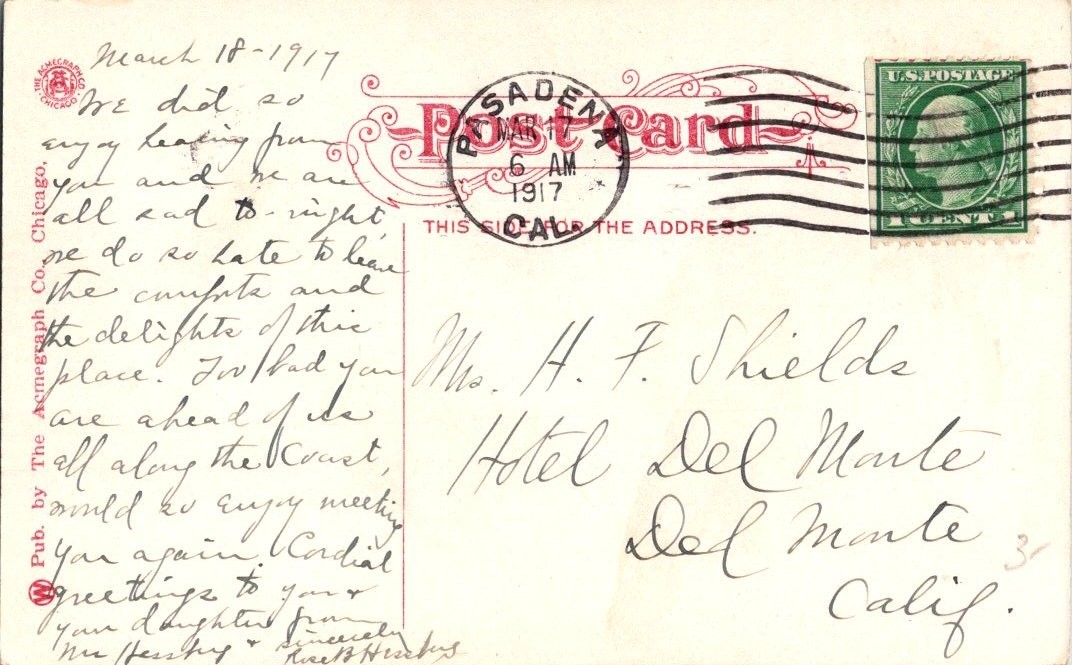 March 18-1917
We did so
enjoy hearing from
you and we are
all sad to-night,
we do so hate to leave
the comforts and
the delights of this
place. Too bad you
are ahead of us
all along the Coast,
would so enjoy meeting
you again. Cordial
greetings to you &
your daughter from
Mr Hessburg & sincerely
Rose B Hessburg
THE ACMEGRAPH CO.
CHICAGO
W Pub. by The Acmegraph Co., Chicago,
Post Card
THIS SIDE FOR THE ADDRESS.
PASADENA
MAR 17
6 AM
1917
CAL.
U.S. POSTAGE
1 CENT 1
Mrs. H. F. Shields
Hotel Del Monte
Del Monte
Calif.
3-